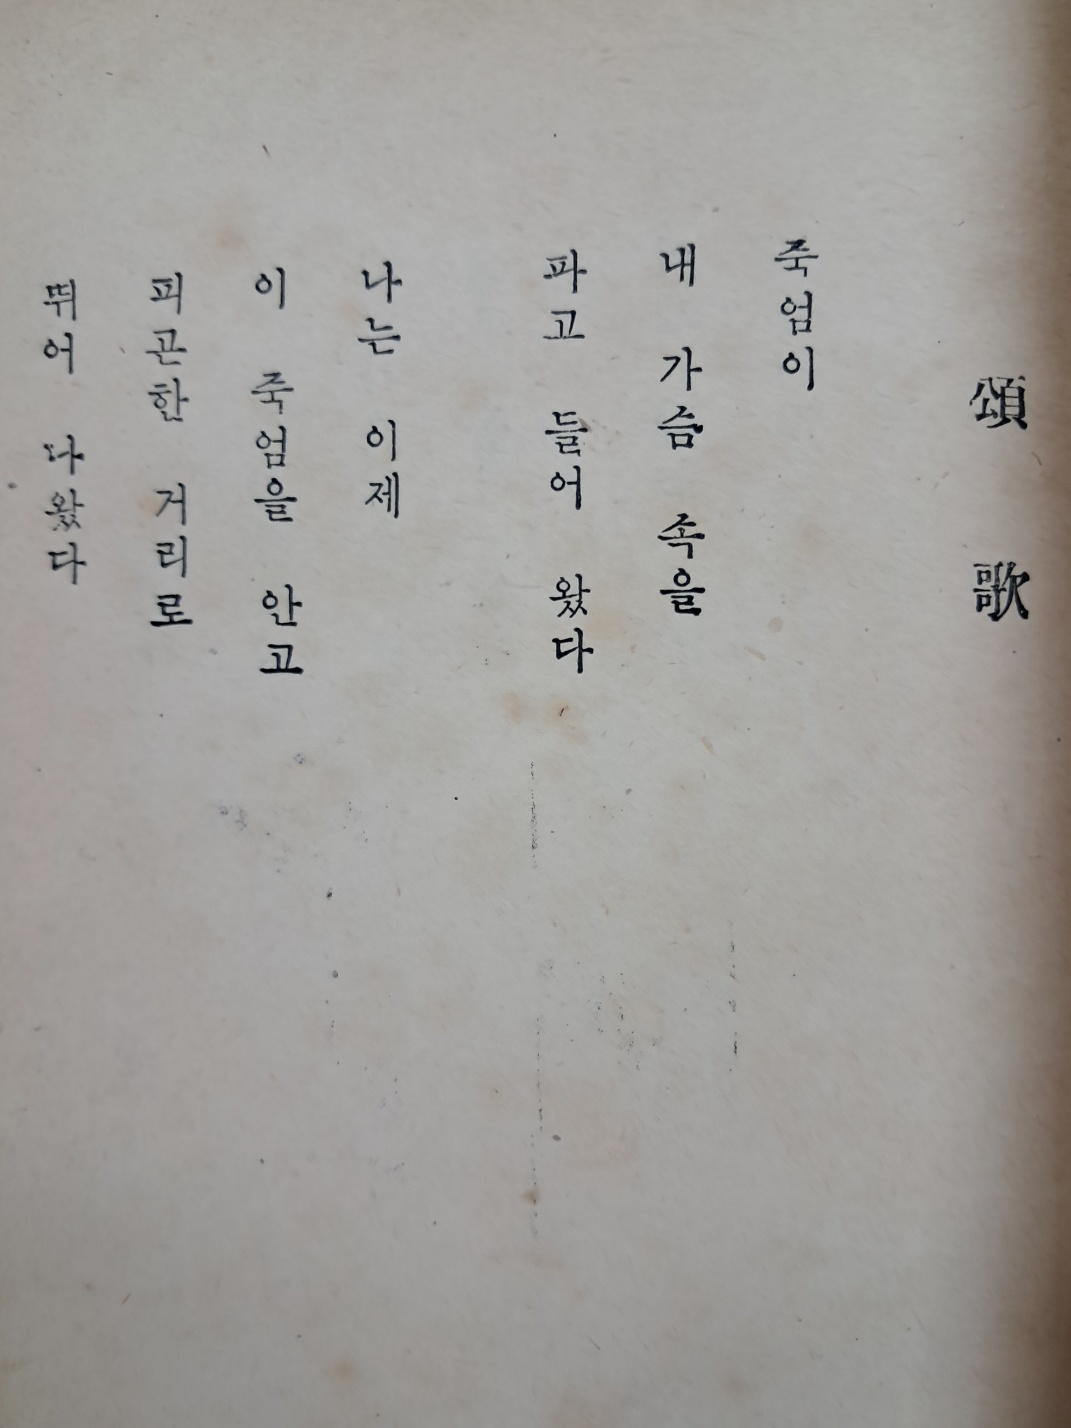 頌歌
죽엄이
내 가슴 속을
파고 들어 왔다
나는 이제
이 죽엄을 안고
피곤한 거리로
뛰어 나왔다